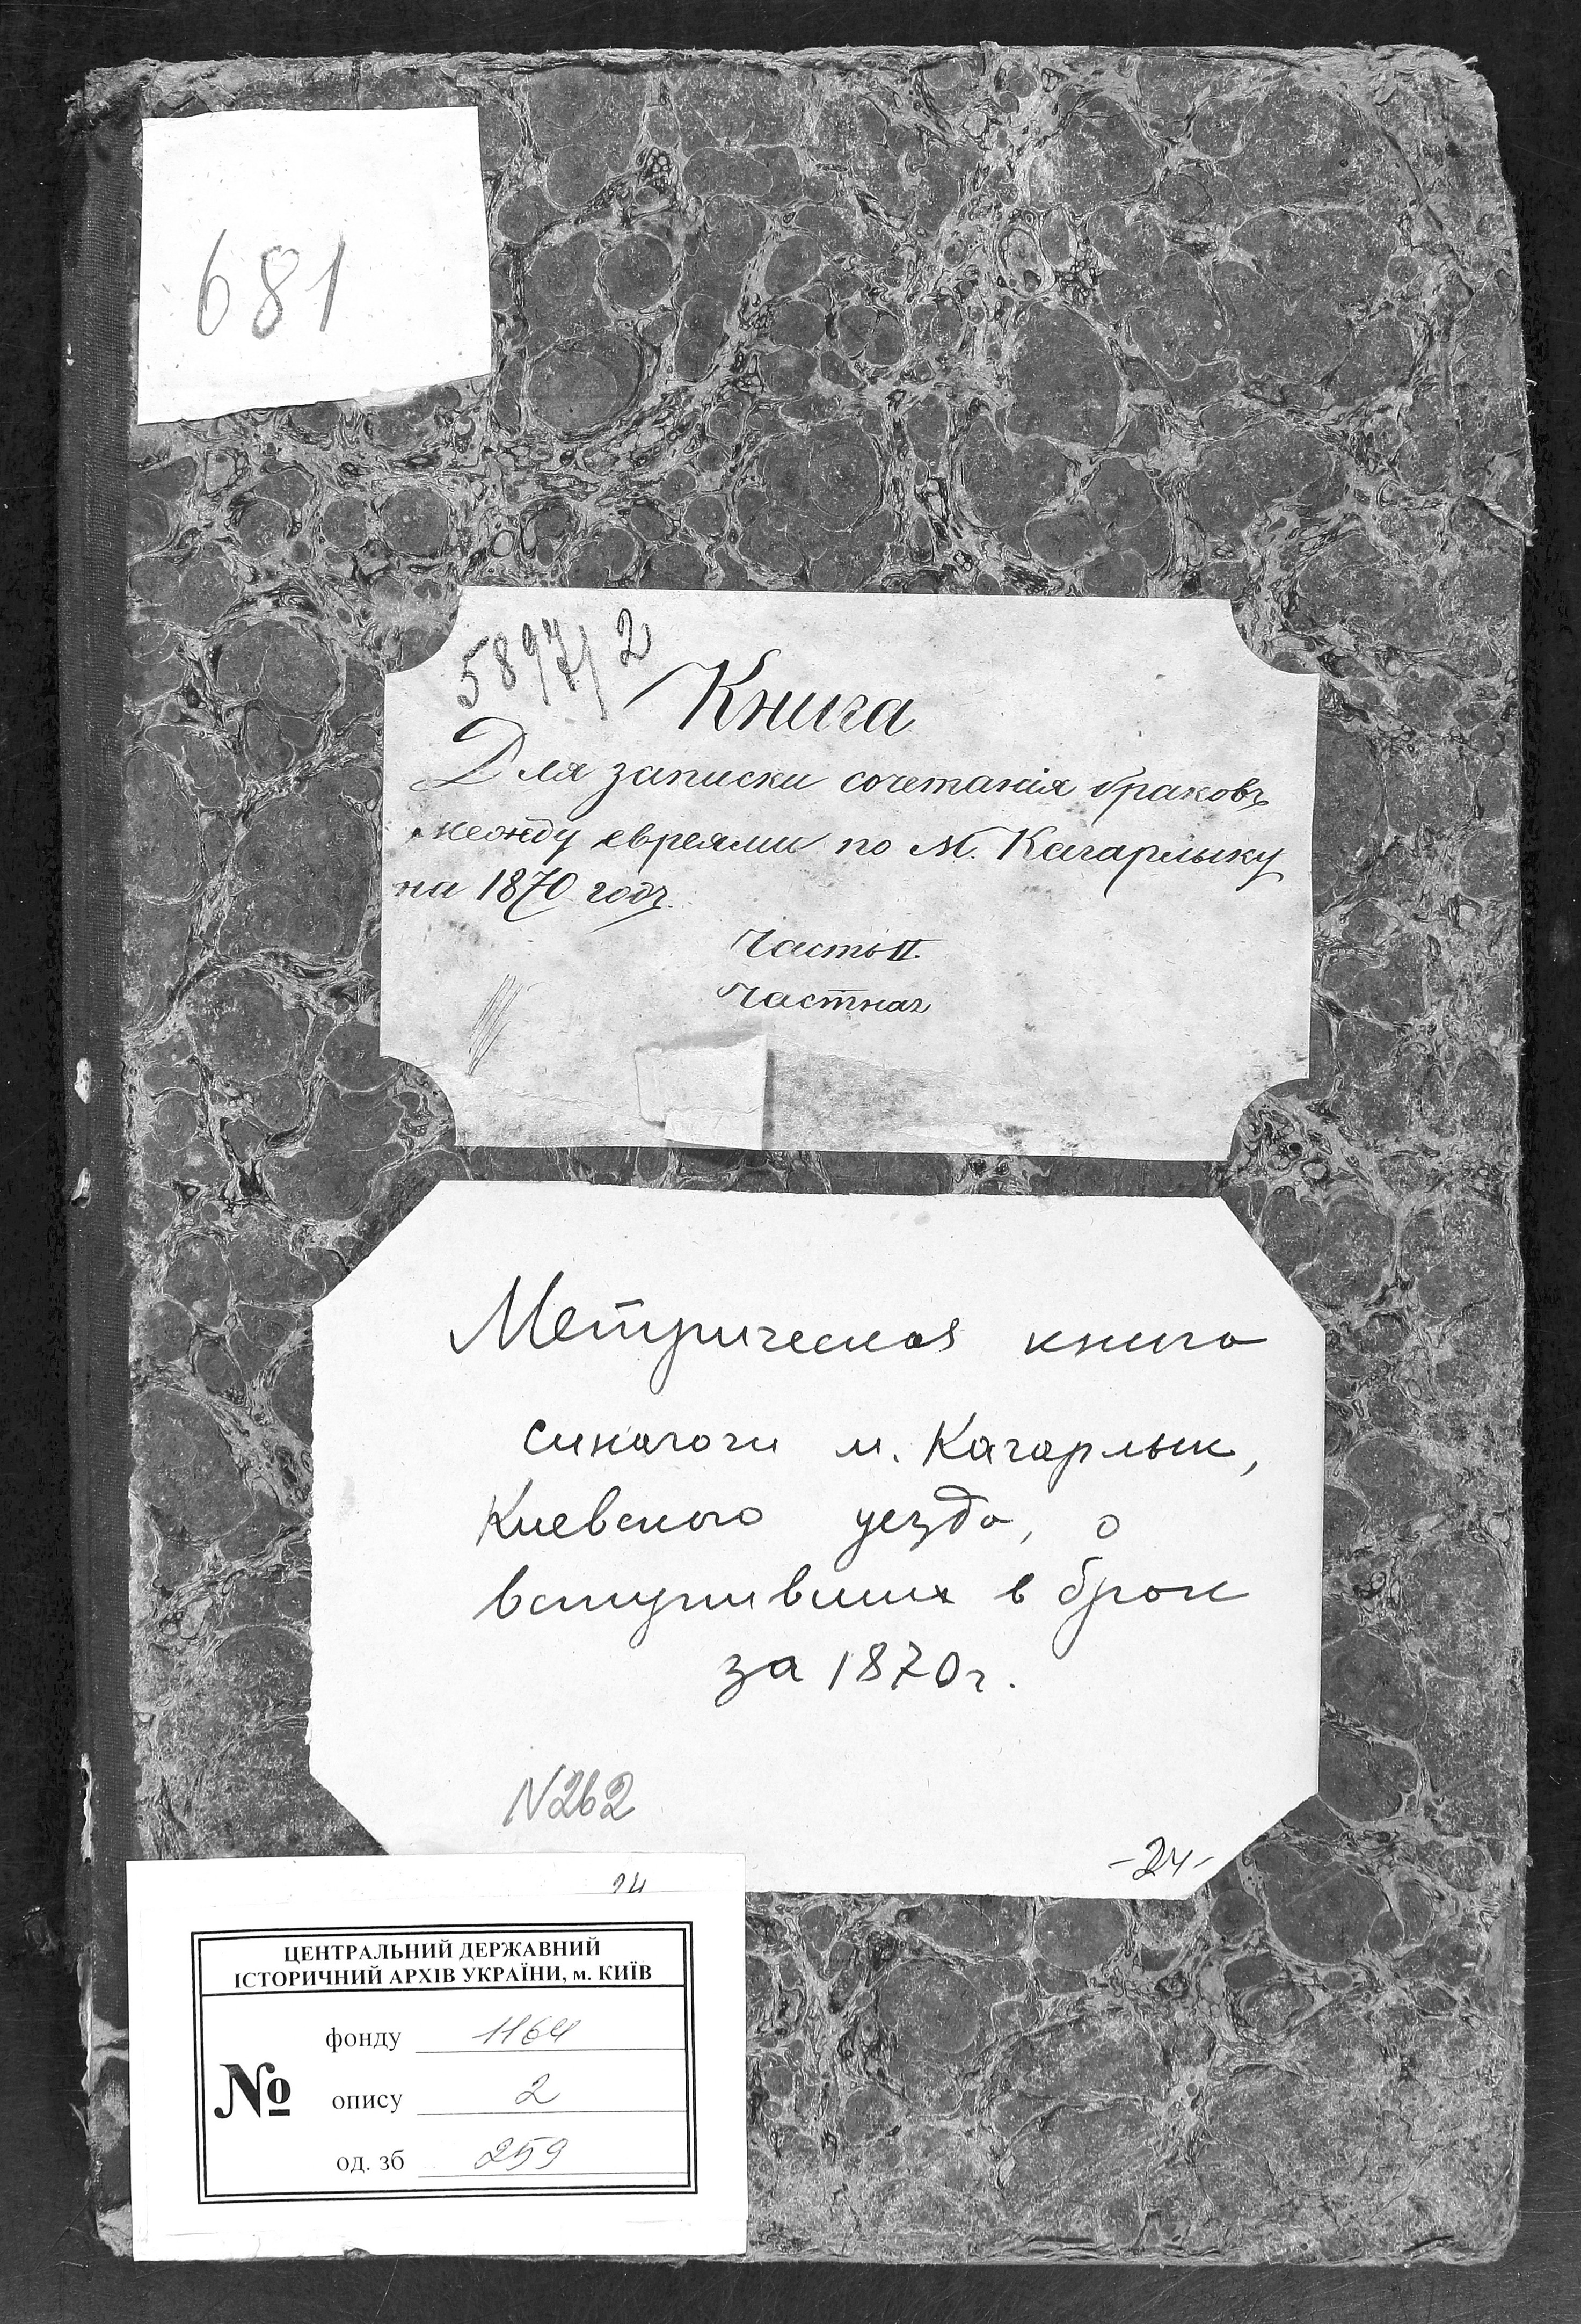 681
5897/2
Книга
Для записки сочетанія браковъ
между евреями по м. Кагарлыку
на 1870 годъ.
Часть II.
Частная
Метрическая книга
синагоги м. Кагарлык,
Киевского уезда, о
вступивших в брак
за 1870г.
N262
-24-
24
ЦЕНТРАЛЬНИЙ ДЕРЖАВНИЙ
ІСТОРИЧНИЙ АРХІВ УКРАЇНИ, м. КИЇВ
фонду 1164
№ опису 2
од. зб 259